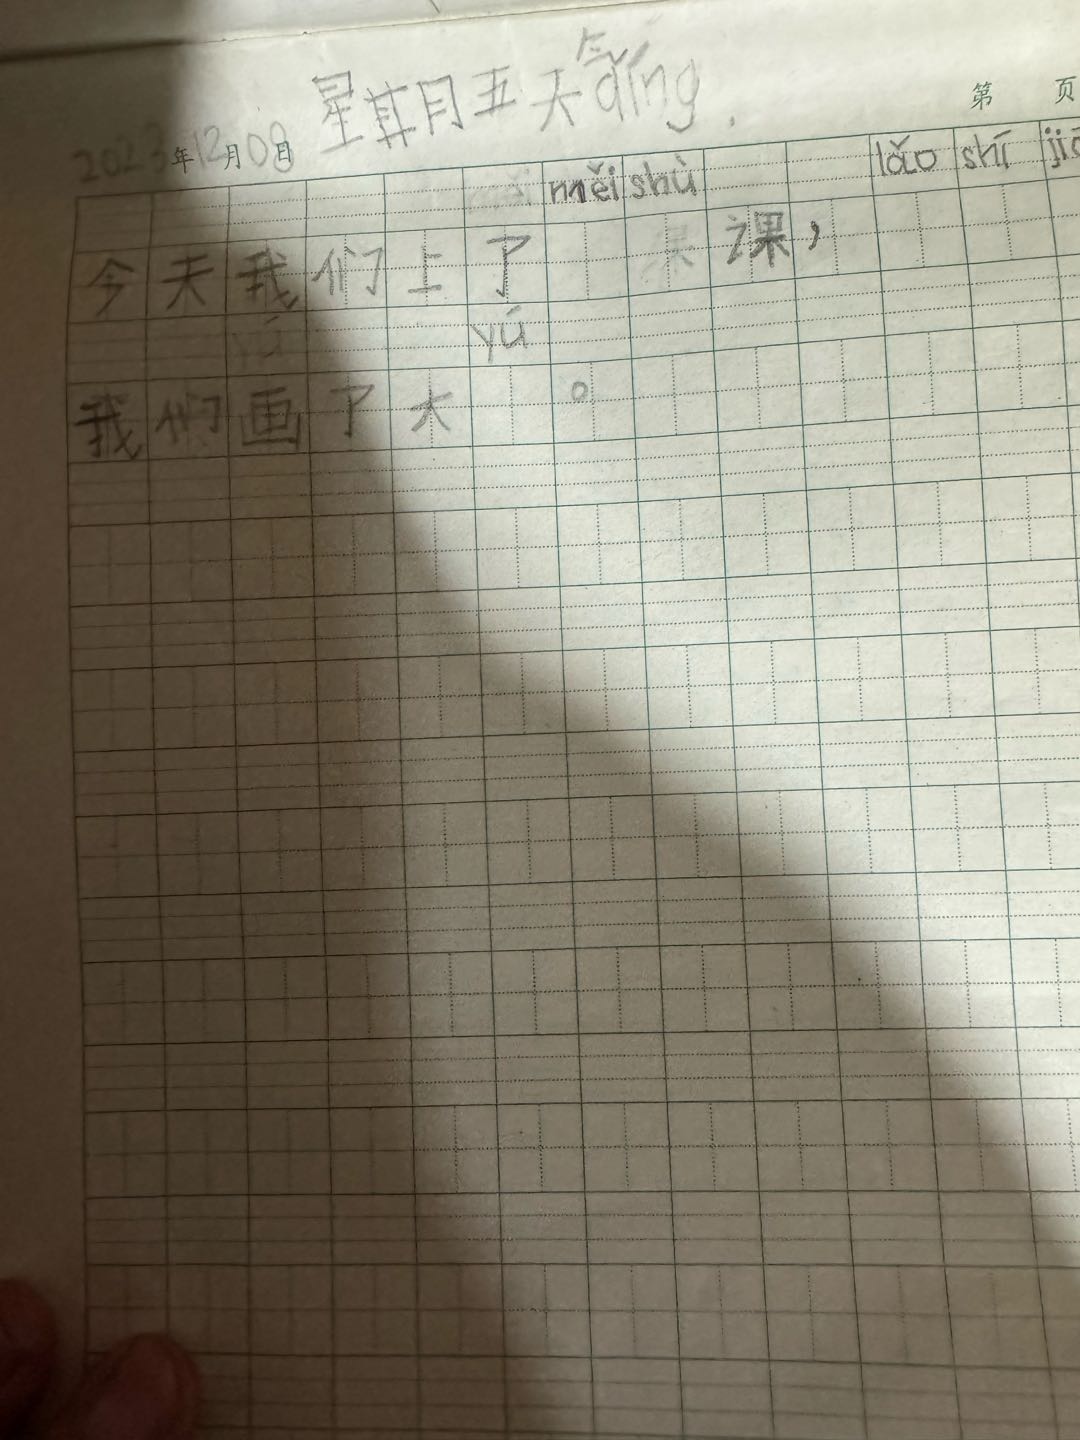 星期五天气qíng.
第 页
2023年12月08日
měi shù lǎo shī
今天我们上了 课，
yú
我们画了大 。